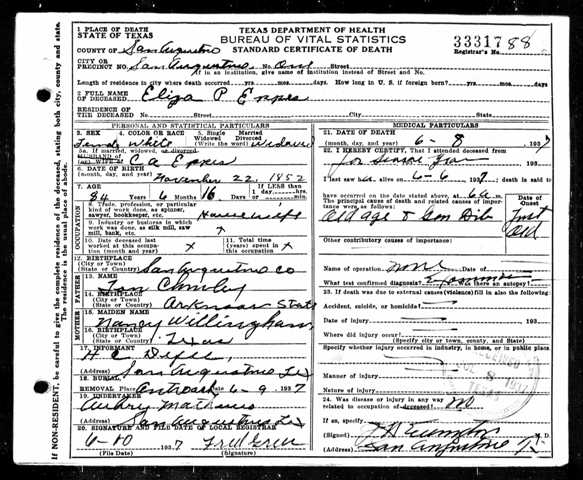 1 PLACE OF DEATH
STATE OF TEXAS
TEXAS DEPARTMENT OF HEALTH
BUREAU OF VITAL STATISTICS
STANDARD CERTIFICATE OF DEATH
COUNTY OF San Augustine
Registrar's No. 88
CITY OR PRECINCT NO. San Augustine No. Street
If in an institution, give name of institution instead of Street and No.
Length of residence in city where death occurred yrs. mos. days. How long in U. S. if foreign born? yrs. mos. days
2 FULL NAME OF DECEASED Eliza P Eppes
RESIDENCE OF THE DECEASED No. Street City State
PERSONAL AND STATISTICAL PARTICULARS
3. SEX 4. COLOR OR RACE 5. Single Married Widowed Divorced (Write the word)
Female White Widowed
5a. If married, widowed, or divorced
HUSBAND OF (or) WIFE OF C A Eppes
6. DATE OF BIRTH (month, day, and year) November 22, 1852
7. AGE 84 6 16 If LESS than
Years Months Days 1 day
OCCUPATION
8. Trade, profession, or particular kind of work done, as spinner, sawyer, bookkeeper, etc. Housewife
9. Industry or business in which work was done, as silk mill, saw mill, bank, etc. x
10. Date deceased last worked at this occupation (month and year) x
11. Total time (years) spent in this occupation x
12. BIRTHPLACE (City or Town) (State or Country) San Augustine Co
FATHER
13. NAME
14. BIRTHPLACE (City or Town) (State or Country) Arkansas State
MOTHER
15. MAIDEN NAME Nancy Willingham
16. BIRTHPLACE (City or Town) (State or Country) Texas
17. INFORMANT
(Address) San Augustine Tex
18. BURIAL
REMOVAL Place Date 6-9 1937
19. UNDERTAKER
(Address) San Augustine Tex
20. SIGNATURE AND FILE DATE OF LOCAL REGISTRAR
6-10 1937
(Signature)
MEDICAL PARTICULARS
21. DATE OF DEATH
(month, day, and year) 6 8 1937
22. I HEREBY CERTIFY, That I attended deceased from
for
I last saw her alive on 6-6 1937, death is said to
have occurred on the date stated above, at 6 a m.
The principal cause of death and related causes of importance were as follows: Date of Onset
Old age & Gen
Old
Other contributory causes of importance:
Name of operation none Date of
What test confirmed diagnosis? Was there an autopsy?
23. If death was due to external causes (violence) fill in also the following
Accident, suicide, or homicide?
Date of injury 193
Where did injury occur?
(Specify city or town, county, and State)
Specify whether injury occurred in industry, in home, or in public place
Manner of injury
Nature of injury
24. Was disease or injury in any way related to occupation of deceased? no
If so, specify
(Signed) M. D.
(Address) San Augustine Tx
IF NON-RESIDENT, be careful to give the complete residence of the deceased, stating both city, county and state.
The residence is the usual place of abode.